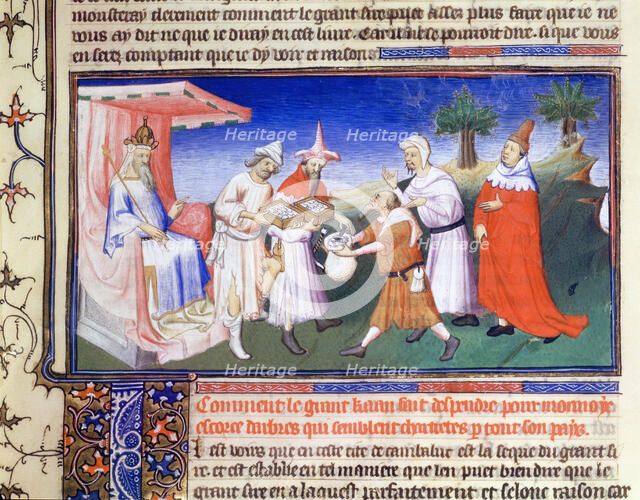 monstreray clerement comment le grant sire puet assez plus faire que ie ne
vous ay dit ne que ie diray en cest liure. Car il
pourroit dire. si que vous
en serez comptant que ie dy voir et raison
Heritage Heritage
Heritage Heritage
Heritage Heritage
Heritage Heritage
Comment le grant kaan fait despendre pour monnoye
escorce darbres qui semblent chartretes p tout son pays.
Il est voirs que en ceste cite de cambaluc est la seque du grant si
re. et est establie en tel maniere que len puet bien dire que le
grant sire en a laquest parfaitement et selonc raison car